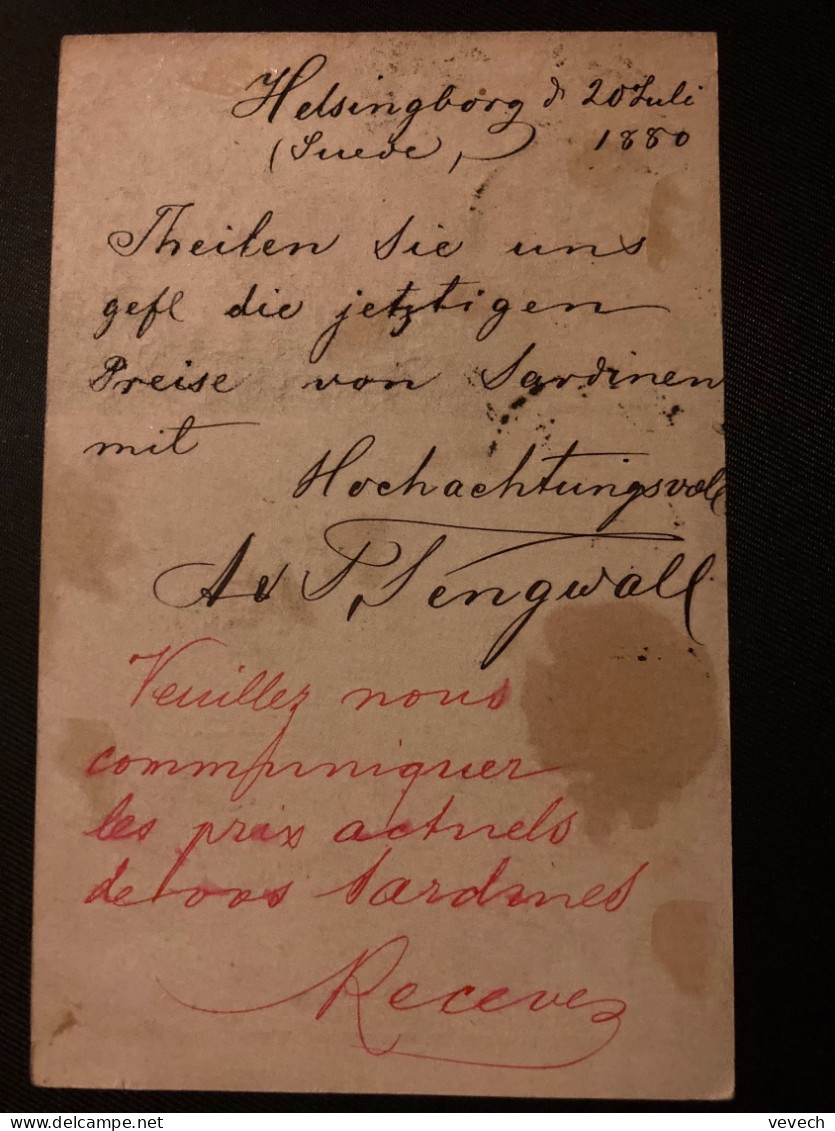 Helsingborg d 20 Juli
(Suede) 1880
Theilen Sie uns
gefl die jetztigen
Preise von Sardinen
mit
Hochachtungsvoll
P, Sengwall
Veuillez nous
communiquer
les prix actuels
de vos Sardines
Recevez
vevech